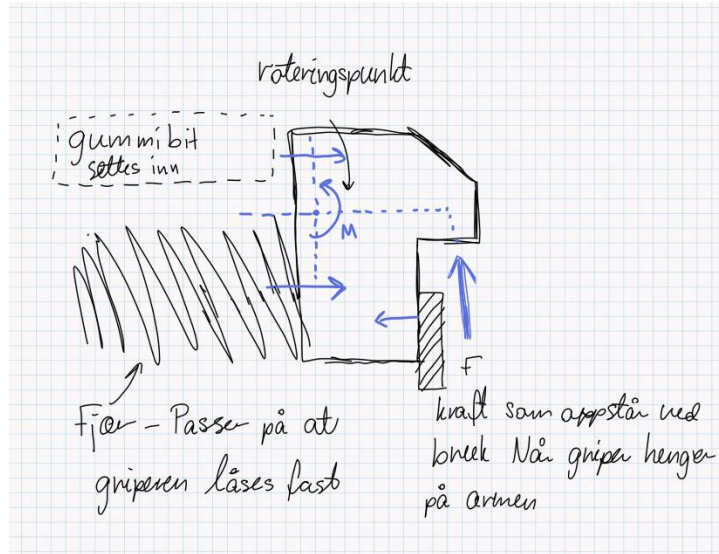 roteringspunkt
gummibit
settes inn
M
F
Fjær - Passer på at
griperen låses fast
kraft som oppstår ved
Når griper henger
på armen